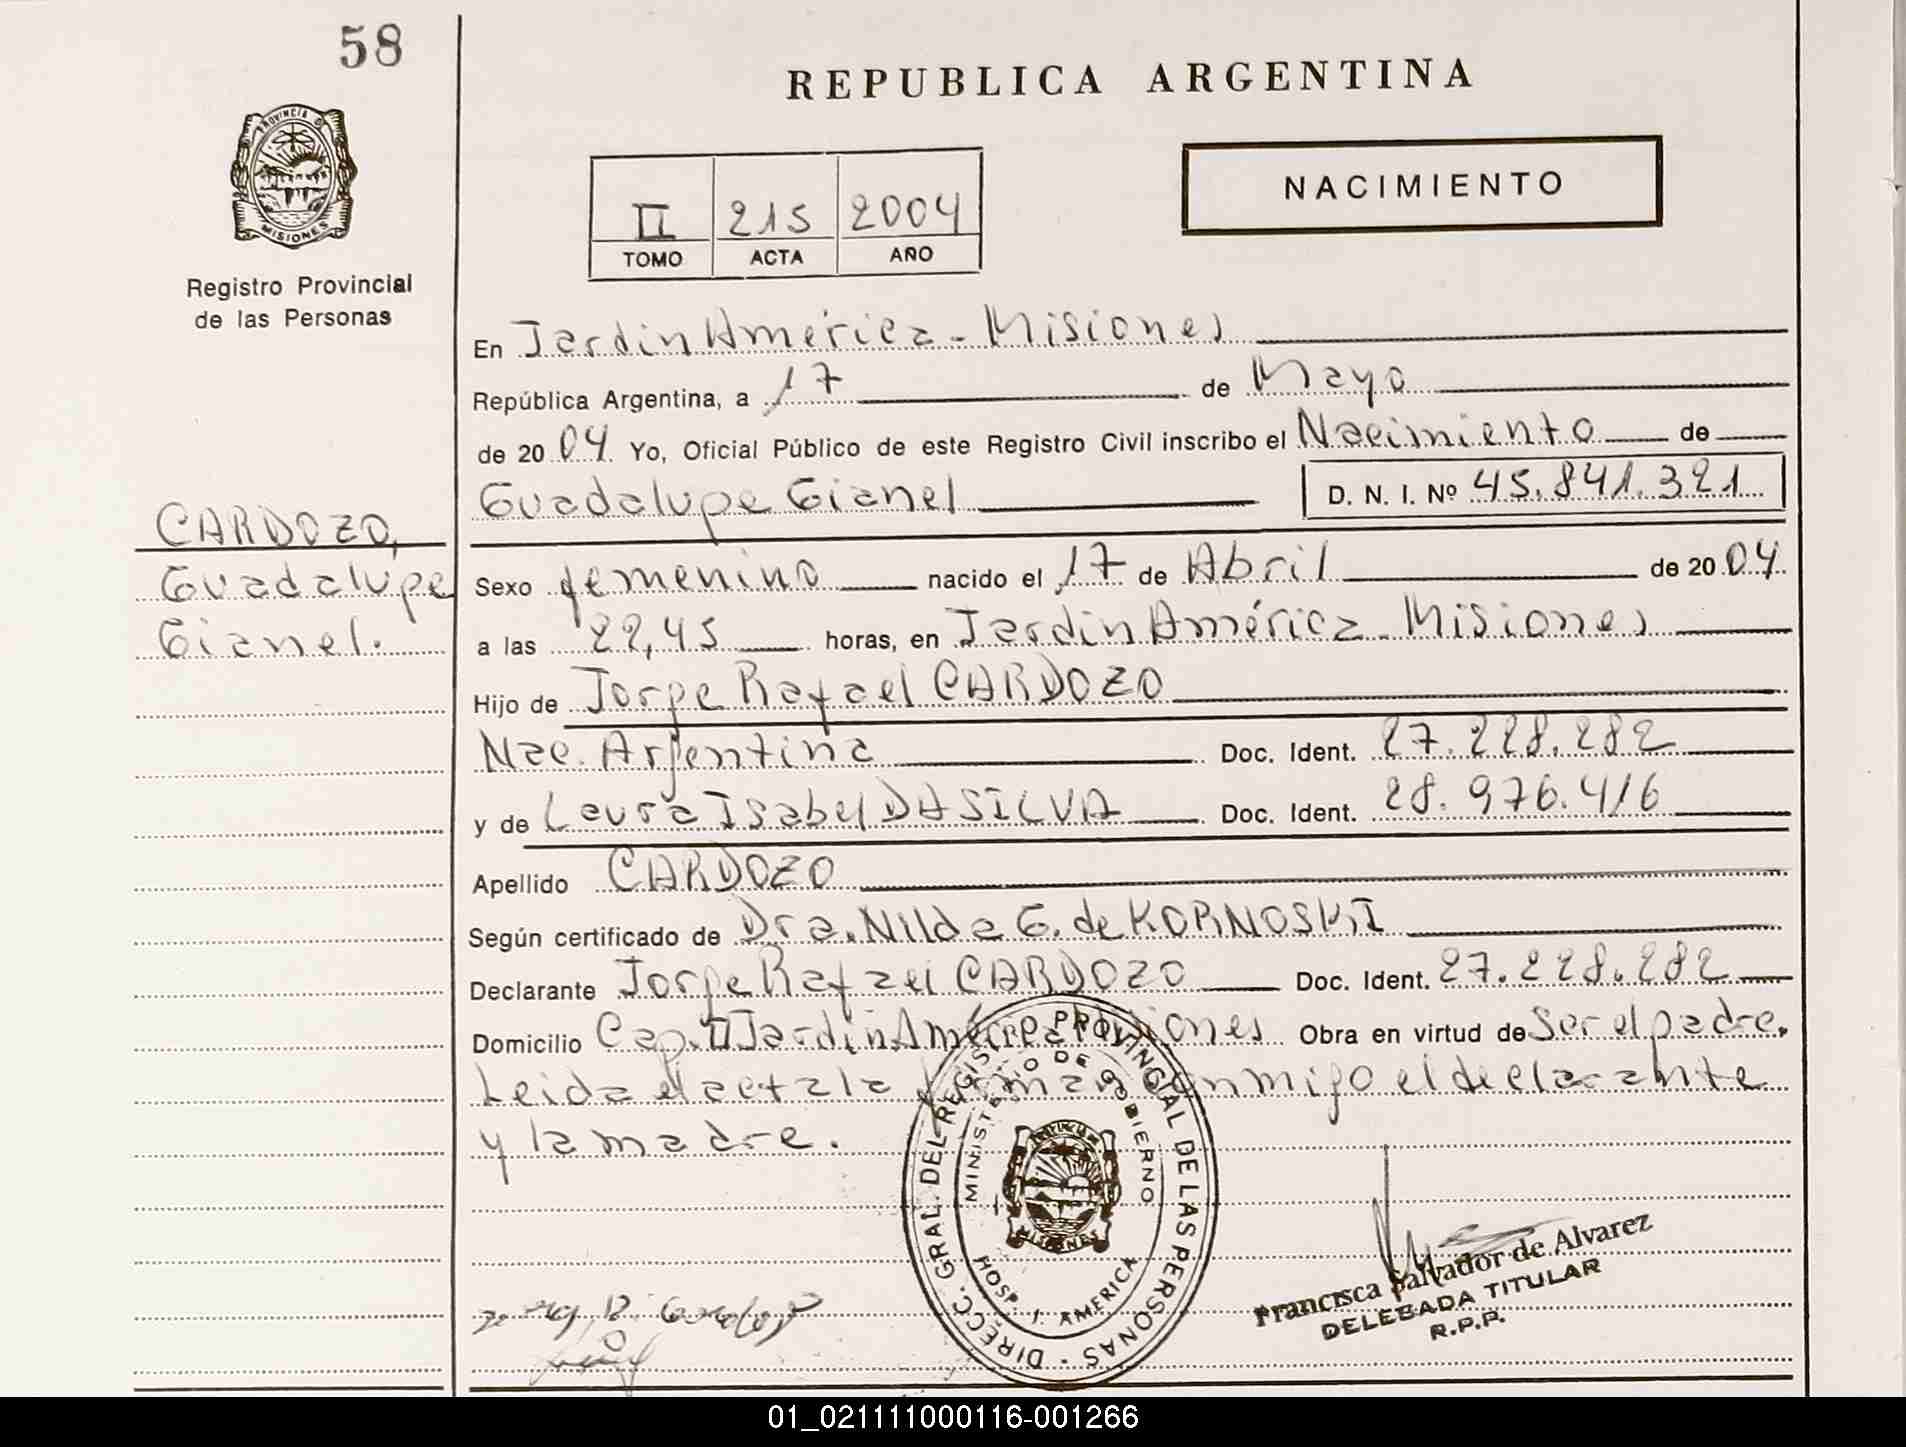 58
REPUBLICA ARGENTINA
PROVINCIA D
MISIONES
NACIMIENTO
II 215 2004
TOMO ACTA AÑO
Registro Provincial
de las Personas
En Jardin América - Misiones
República Argentina, a 17 de Mayo
de 2004 Yo, Oficial Público de este Registro Civil inscribo el Nacimiento de
Guadalupe Gianel D. N. I. Nº 45.841.321
CARDOZO,
Guadalupe
Gianel.
Sexo femenino nacido el 17 de Abril de 2004
a las 22,45 horas, en Jardin América - Misiones
Hijo de Jorge Rafael CARDOZO
Nac. Argentina Doc. Ident. 27.228.282
y de Laura Isabel DA SILVA Doc. Ident. 28.976.416
Apellido CARDOZO
Según certificado de Dra. Nilda G. de KORNOSKI
Declarante Jorge Rafael CARDOZO Doc. Ident. 27.228.282
Domicilio Cap. II Jardin América Misiones Obra en virtud de Ser el padre.
Leida el acta la firman conmigo el declarante
y la madre.
DIRECC. GRAL. DEL REGISTRO PROVINCIAL DE LAS PERSONAS
MINISTERIO DE GOBIERNO
MISIONES
HOSP. J. AMERICA
Francisca Salvador de Alvarez
DELEGADA TITULAR
R.P.P.
01_021111000116-001266